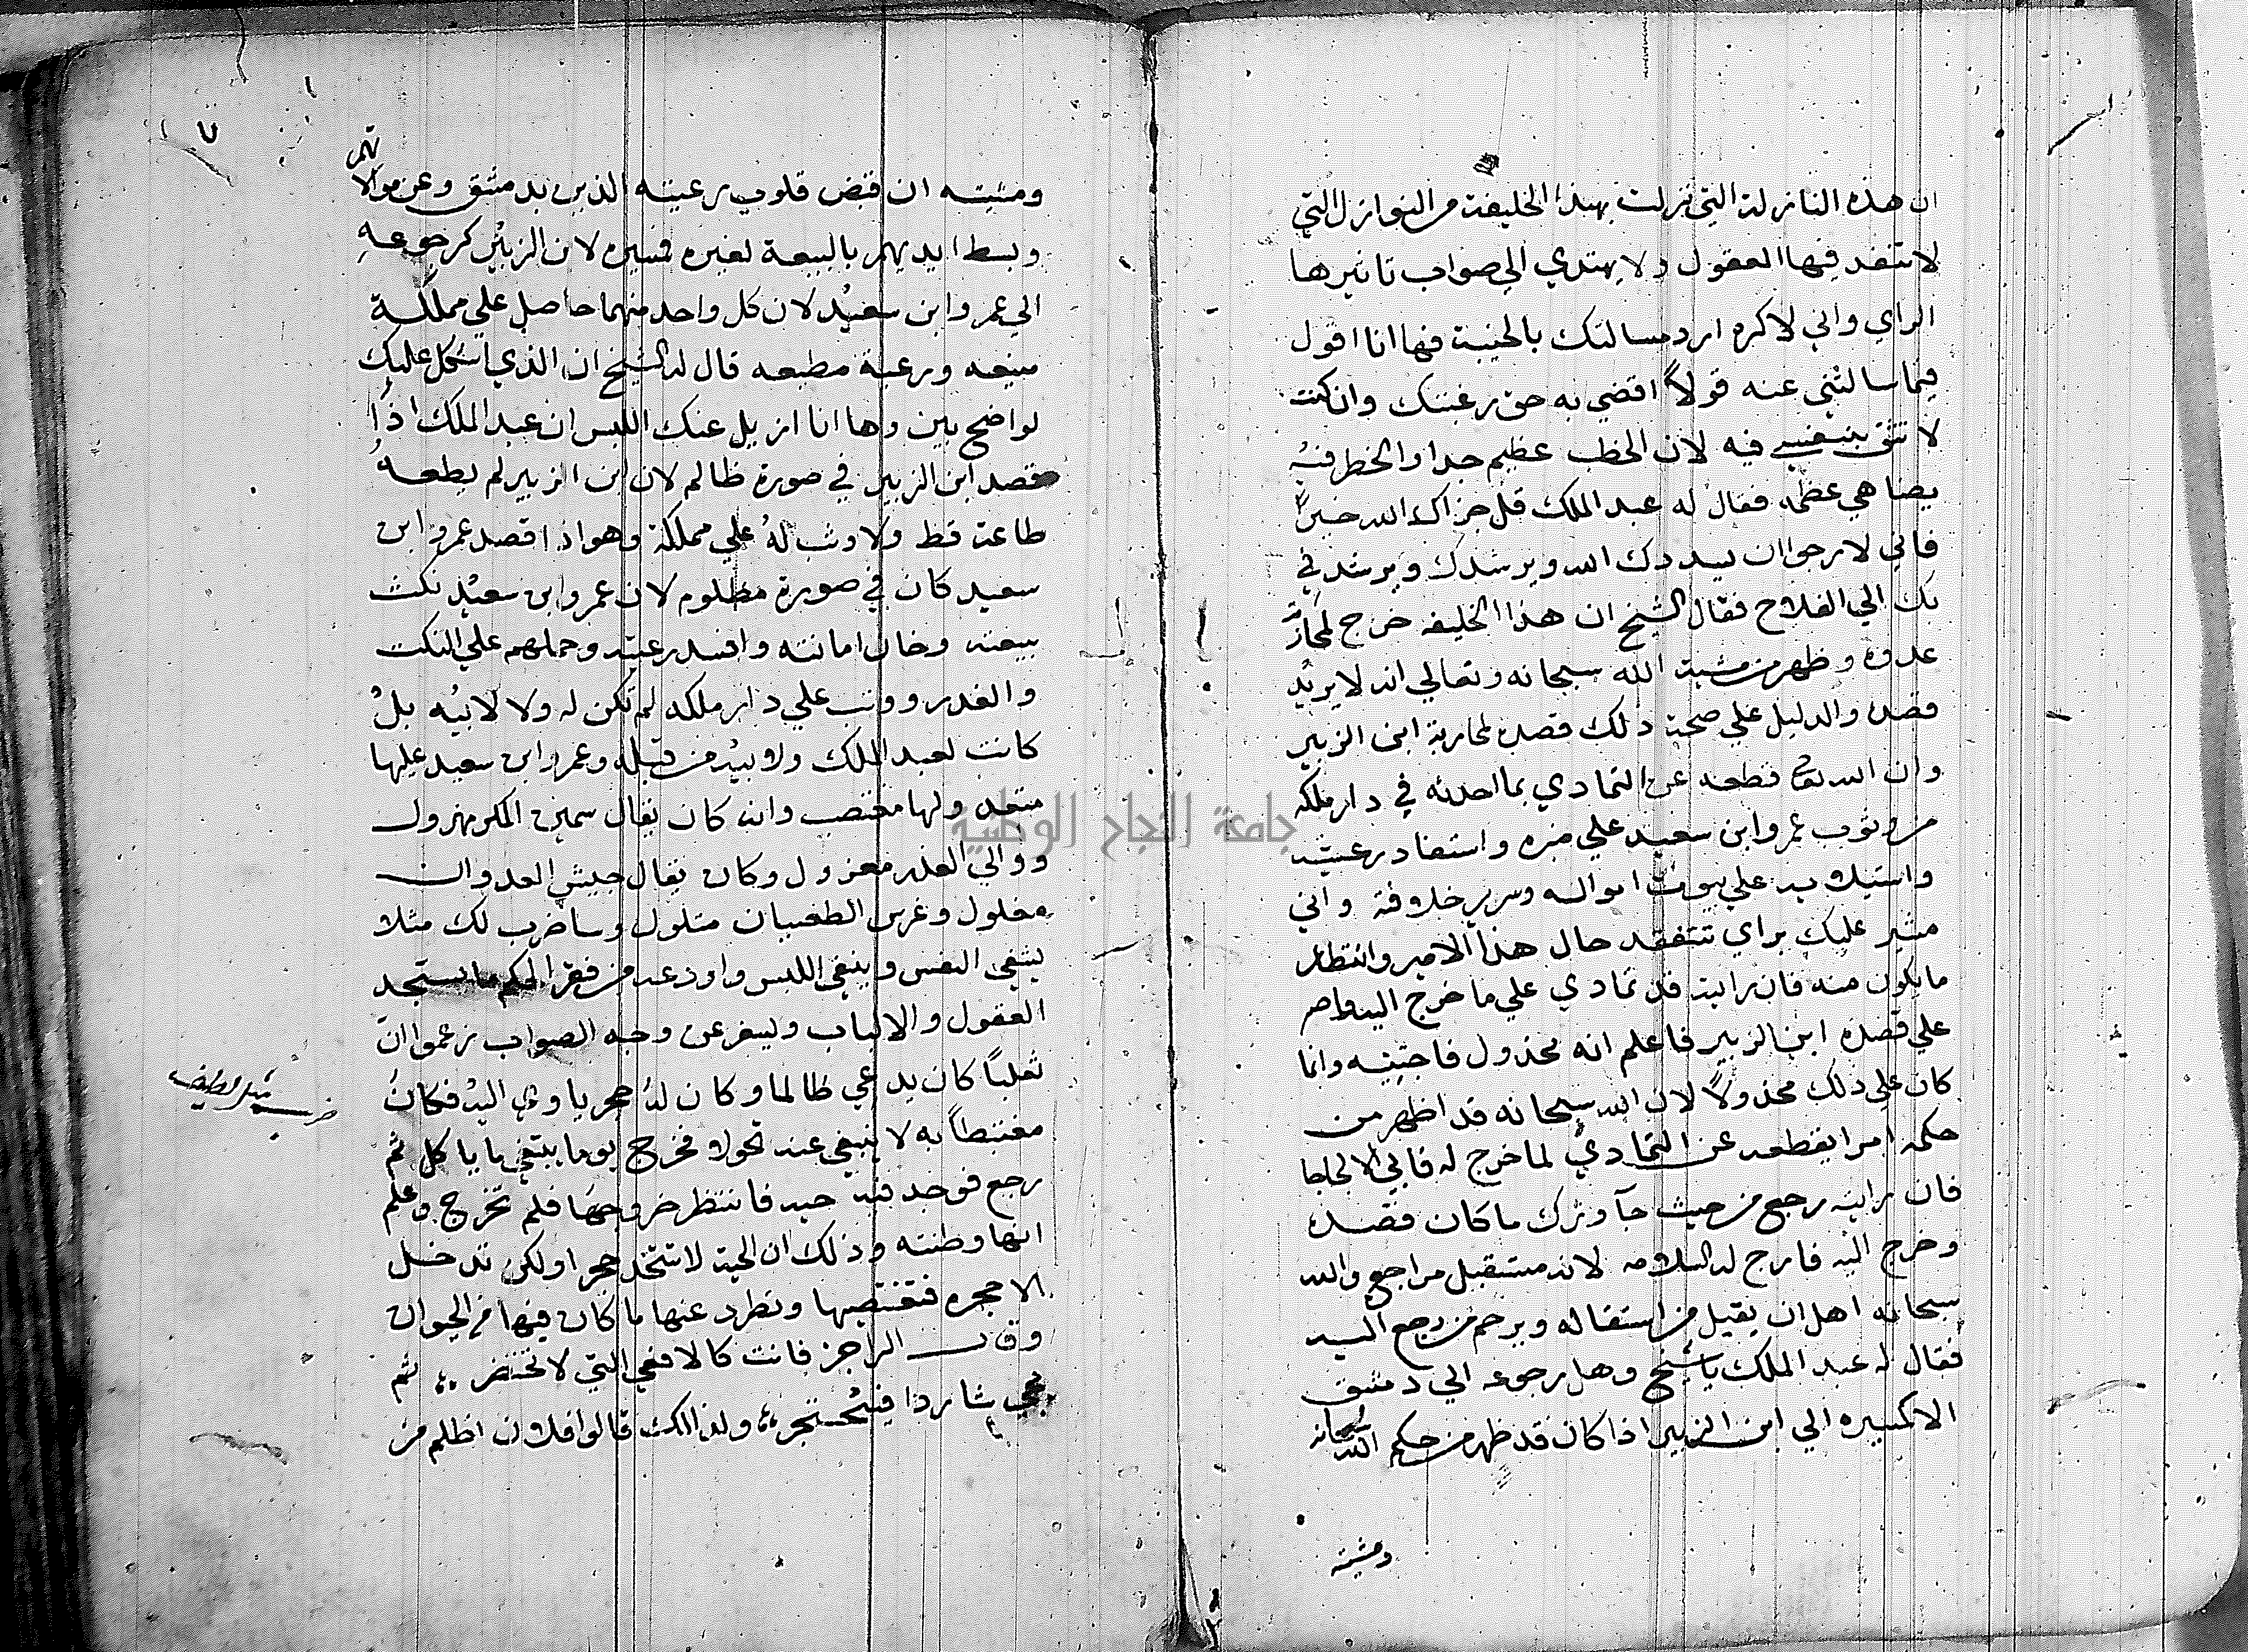 ان هذه النازلة التي نزلت بهذا الخليفة من النوازل التي
لا تنفد فيها العقول ولا يهتدي الي صواب تاثيرها
الراي واني لاكره ارد مسالتك بالخيبة فها انا اقول
فيما سالتني عنه قولاً اقضي به حق رغبتك وان كنت
لا تثق بنفسي فيه لان الخطب عظيم جدا والخطر فيه
يضاهي عظمه فقال له عبد الملك قل جزاك الله خيراً
فاني لارجوا ان يسددك الله ويرشدك ويرشد في
بك الي الفلاح فقال الشيخ ان هذا الخليفه خرج لمحاربة
عدوه وظهر من مشية الله سبحانه وتعالي انه لا يريد
قصده والدليل علي صحة ذلك قصده لمحاربة ابن الزبير
وان الله تعالى قطعه عن التمادي بما احدثه في دار ملكه
من وثوب عمرو ابن سعيد علي منبره واستفاد رعيته
واستيلايه علي بيوت امواله وسرير خلافته واني
مشير عليك براي تتفقد حال هذا الامير وانتظار
ما يكون منه فان رايته قد تمادي علي ما خرج اليه واصر
علي قصده ابن الزبير فاعلم انه مخذول فاجتنبه وانما
كان علي ذلك مخذولاً لان الله سبحانه قد اظهر من
حكمه امرا يقطعه عن التمادي لما خرج له فابي الا لجاجا
فان رايته رجع من حيث جآ وترك ما كان قصده
وخرج اليه فارج له السلامه لانه مستقيل مراجع والله
سبحانه اهل ان يقيل من استقاله ويرحم من رجع اليه
فقال له عبد الملك يا شيخ وهل رجوعه الي دمشق
الا كمسيره الي ابن الزبير اذا كان قد ظهر من حكم الله سبحانه
ومشيته
٧
ومشيته ان قبض قلوب رعيته الذين بدمشق وعن موالاتهم
وبسط ايديهم بالبيعة لغيره فمسيره لابن الزبير كرجوعه
الي عمرو ابن سعيد لان كل واحد منهما حاصل علي مملكة
منيعه ورعية مطيعه قال له الشيخ ان الذي اشكل عليك
لواضح بين وها انا ازيل عنك اللبس ان عبد الملك اذا
قصد ابن الزبير في صورة ظالم لان ابن الزبير لم يطعه
طاعة قط ولا وثب له علي مملكة وهو اذا قصد عمرو ابن
سعيد كان في صورة مظلوم لان عمرو ابن سعيد نكث
بيعته وخان امانته وافسد رعيته وحملهم علي النكث
والغدر ووثب علي دار ملكه لم تكن له ولا لابيه بل
كانت لعبد الملك ولابيه من قبله وعمرو ابن سعيد عليها
متعد ولها مغتصب وانه كان يقال سمين المكر مهزول
ووالي الغدر معزول وكان يقال جيش العدوان
مغلول وغرس الطغيان مثلول وساضرب لك مثلا
يشفي النفس وينفي اللبس واودعه من فقر الحكم ما يستجد
العقول والالباب ويسفر عن وجه الصواب زعموا ان
ثعلباً كان يدعي ظالما وكان له جحر ياوي اليه فكان
مغتبطاً به لا يبغي عنه تحولا فخرج يوما يبتغي ما ياكل ثم
رجع فوجد فيه حيه فانتظر خروجها فلم تخرج وعلم
انها وطنته وذلك ان الحية لا تتخذ جحرا ولكن تدخل
الا جحره فتغتصبها وتطرد عنها ما كان فيها من الحيوان
وقال الراجز فانت كالافعي التي لا تحتفر ،، ثم
تجي شاردا فتستجر ،، ولذالك قالوا فلان اظلم من
مثل لطيف